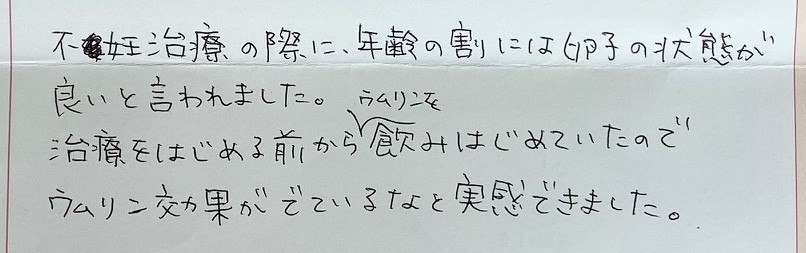 不妊治療の際に、年齢の割には卵子の状態が
良いと言われました。
治療をはじめる前からウムリンを飲みはじめていたので
ウムリン効果がでているなと実感できました。